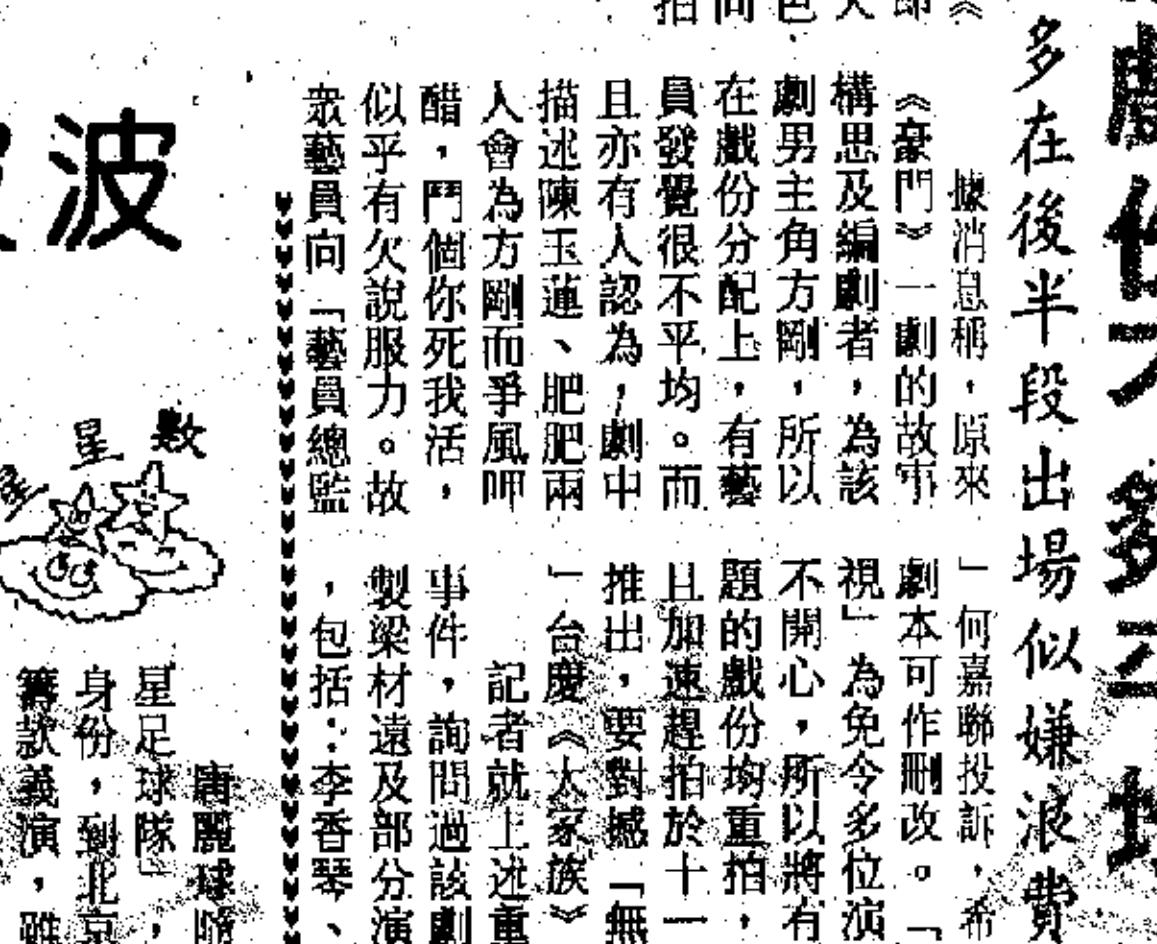 多在後半段出場似嫌浪費
據消息稱，原來
《豪門》一劇的故事
構思及編劇者，為該
劇男主角方剛，所以
在戲份分配上，有藝
員發覺很不平均。而
且亦有人認為，劇中
描述陳玉蓮、肥肥兩
人會為方剛而爭風呷
醋，鬥個你死我活，
似乎有欠說服力。故
衆藝員向「藝員總監
」何嘉聯投訴，希
劇本可作刪改。「
視」為免令多位演
不開心，所以將有
題的戲份均重拍，
且加速趕拍於十一
推出，要對撼「無
」台慶《大家族》
記者就上述重
事件，詢問過該劇
製梁材遠及部分演
，包括：李香琴、
波
數
星
星
唐麗球隨
星足球隊」，
身份，到北京
籌款義演，雖